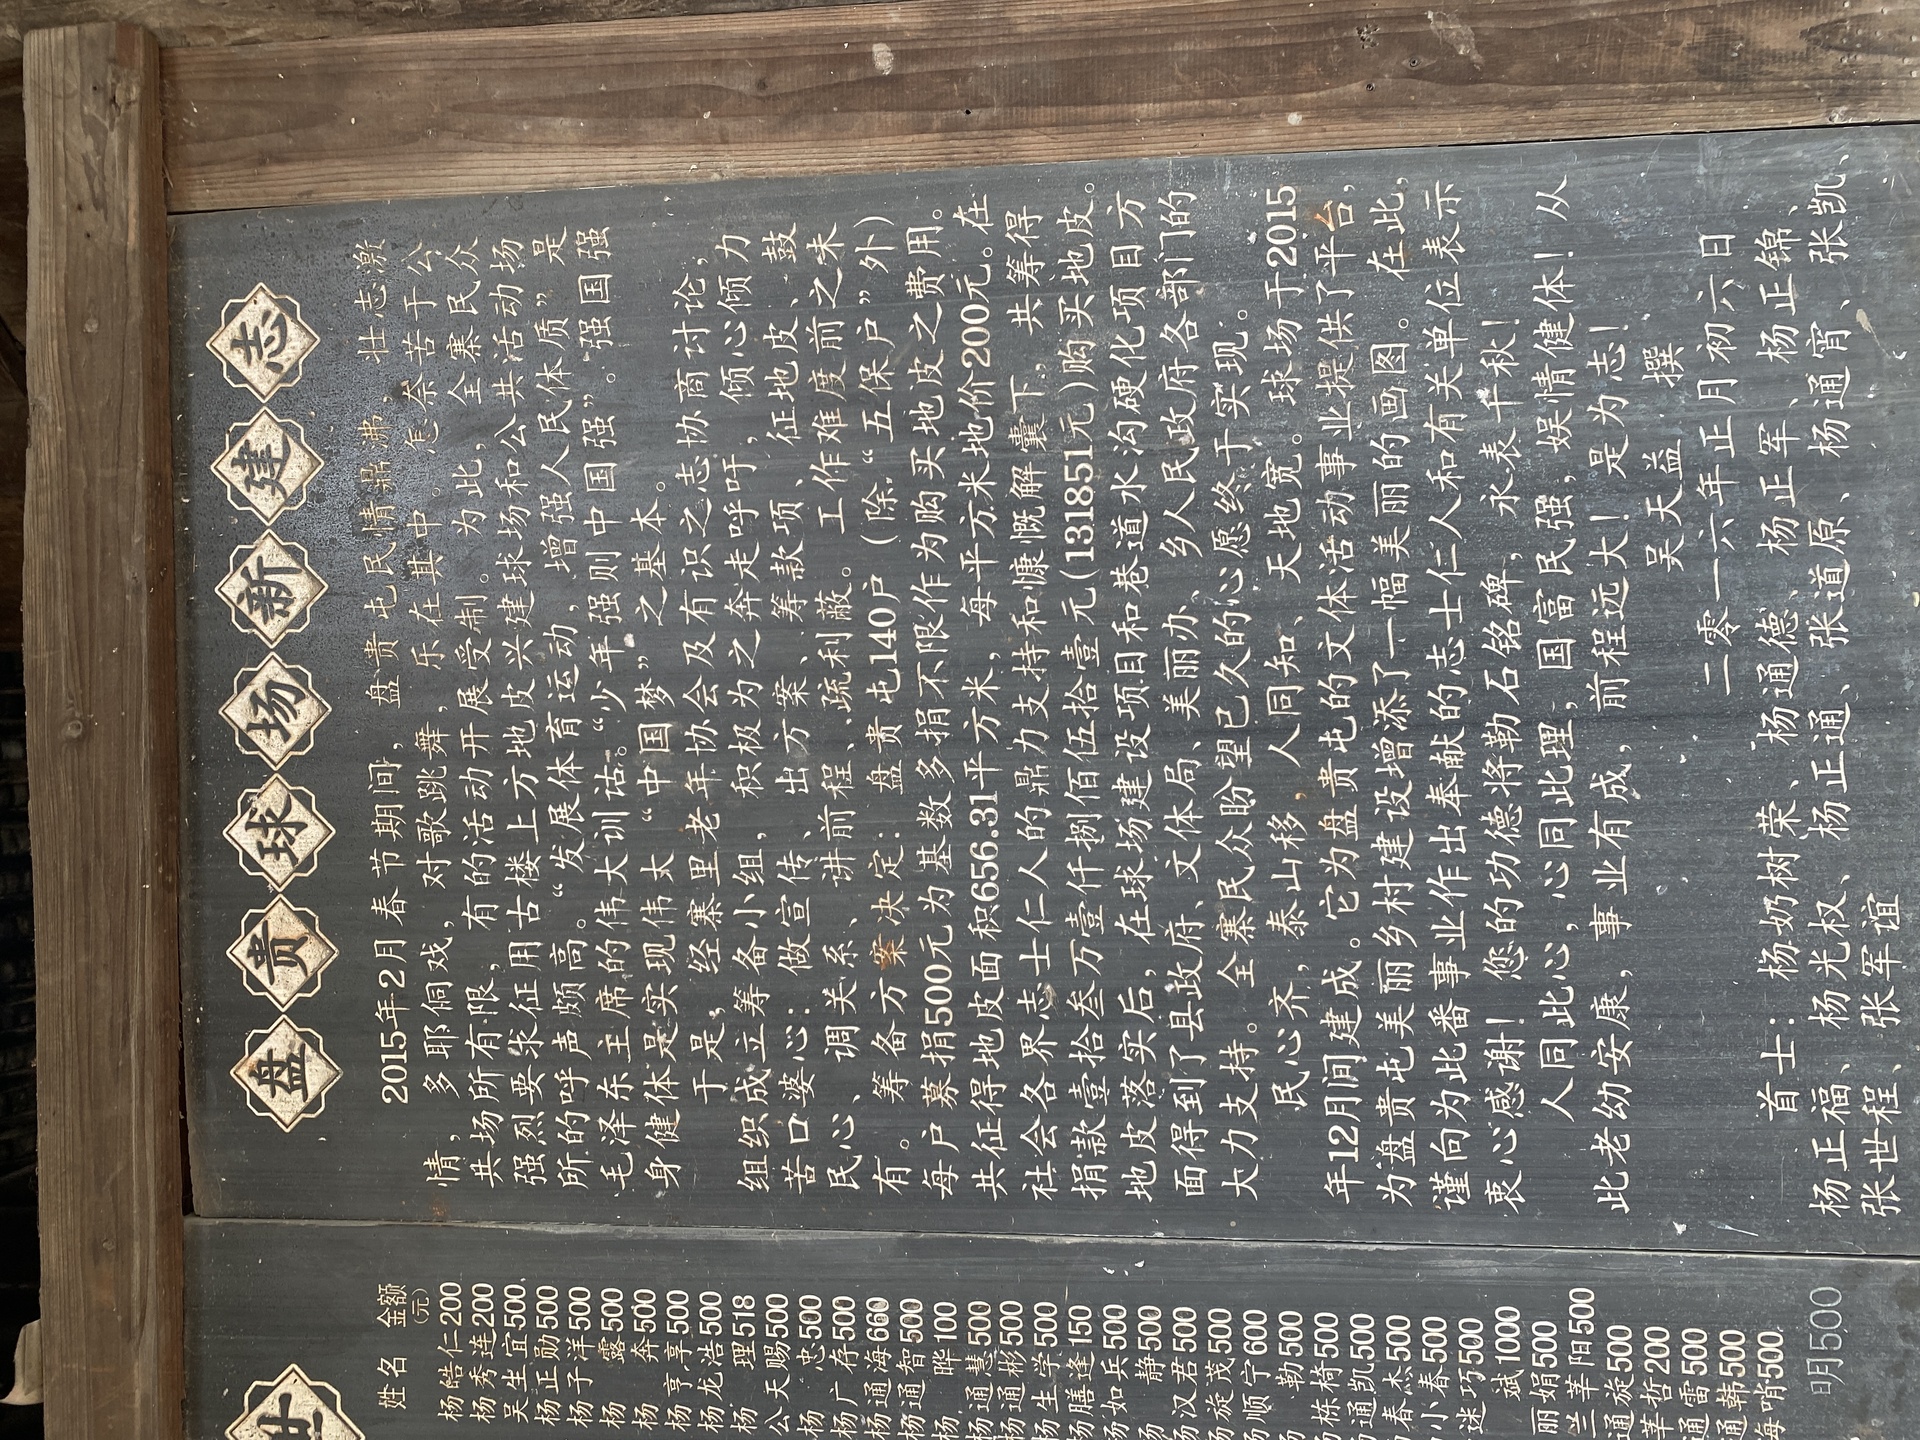 盘贵球场新建志
2015年2月春节期间，盘贵屯民情鼎沸，壮志激
情，多耶侗戏，对歌跳舞，乐在其中。怎奈苦于公
共场所有限，有的活动开展受制。为此，全寨民众
强烈要求征用古楼上方地皮兴建球场和公共活动场
所的呼声颇高。“发展体育运动，增强人民体质”是
毛泽东主席的伟大训诂。“少年强则中国强”。“强国强
身健体是实现伟大“中国梦”之基本。
于是，经寨里老年协会及有识之志协商讨论，
组织成立筹备小组，积极为之奔走呼吁，倾心倾力
苦口婆心：做宣传、出方案、筹款项、征地皮、鼓
民心、调关系、讲前程、疏利蔽。工作难度前之未
有。筹备方案决定：盘贵屯140户（除“五保户”外）
每户募捐500元为基数多捐不限作为购买地皮之费用。
共征得地皮面积656.31平方米，每平方米地价200元。在
社会各界志士仁人的鼎力支持和慷慨解囊下，共筹得
捐款壹拾叁万壹仟捌佰伍拾壹元(131851元)购买地皮。
地皮落实后，在球场建设项目和巷道水沟硬化项目方
面得到了县政府、文体局、美丽办、乡人民政府各部门的
大力支持。全寨民众盼望已久的心愿终于实现。
民心齐，泰山移，人同知、天地宽。球场于2015
年12月间建成。它为盘贵屯的文体活动事业提供了平台，
为盘贵屯美丽乡村建设增添了一幅美丽的画图。在此，
谨向为此番事业作出奉献的志士仁人和有关单位表示
衷心感谢！您的功德将勒石铭碑，永表千秋！
人同此心，心同此理，国富民强，娱情健体！从
此老幼安康，事业有成，前程远大！是为志！
吴天益 撰
二零一六年正月初六日
首士：杨奶树荣、杨通德、杨正军、杨正锦、
杨正福、杨光权、杨正通、张道原、杨通宵、张凯、
张世程、张军谊
姓名 金额(元)
杨皓仁200
杨秀连200
吴生宜500
杨正勋500
杨子洋500
杨露500
杨奔500
杨亨享500
杨龙浩500
杨理518
公天赐500
杨忠500
杨广存500
杨通海660
杨通智500
杨晔100
杨通慧500
杨通彬500
杨生学500
杨膳逢150
杨如兵500
杨静500
汉君500
旋茂500
顺宁600
勒500
栋椅500
通凯500
春杰500
小春500
迷巧500
斌1000
丽娟500
兰莘阳500
通旋500
莘哲200
通雷500
通韩500
海哨500
明500